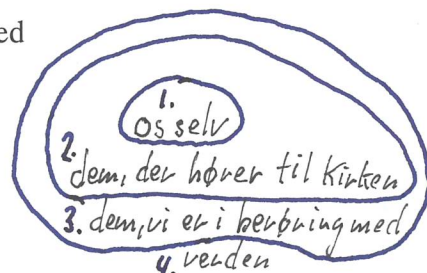 ed
1.
os selv
2.
dem, der hører til Kirken
3. dem, vi er i berøring med
4. verden